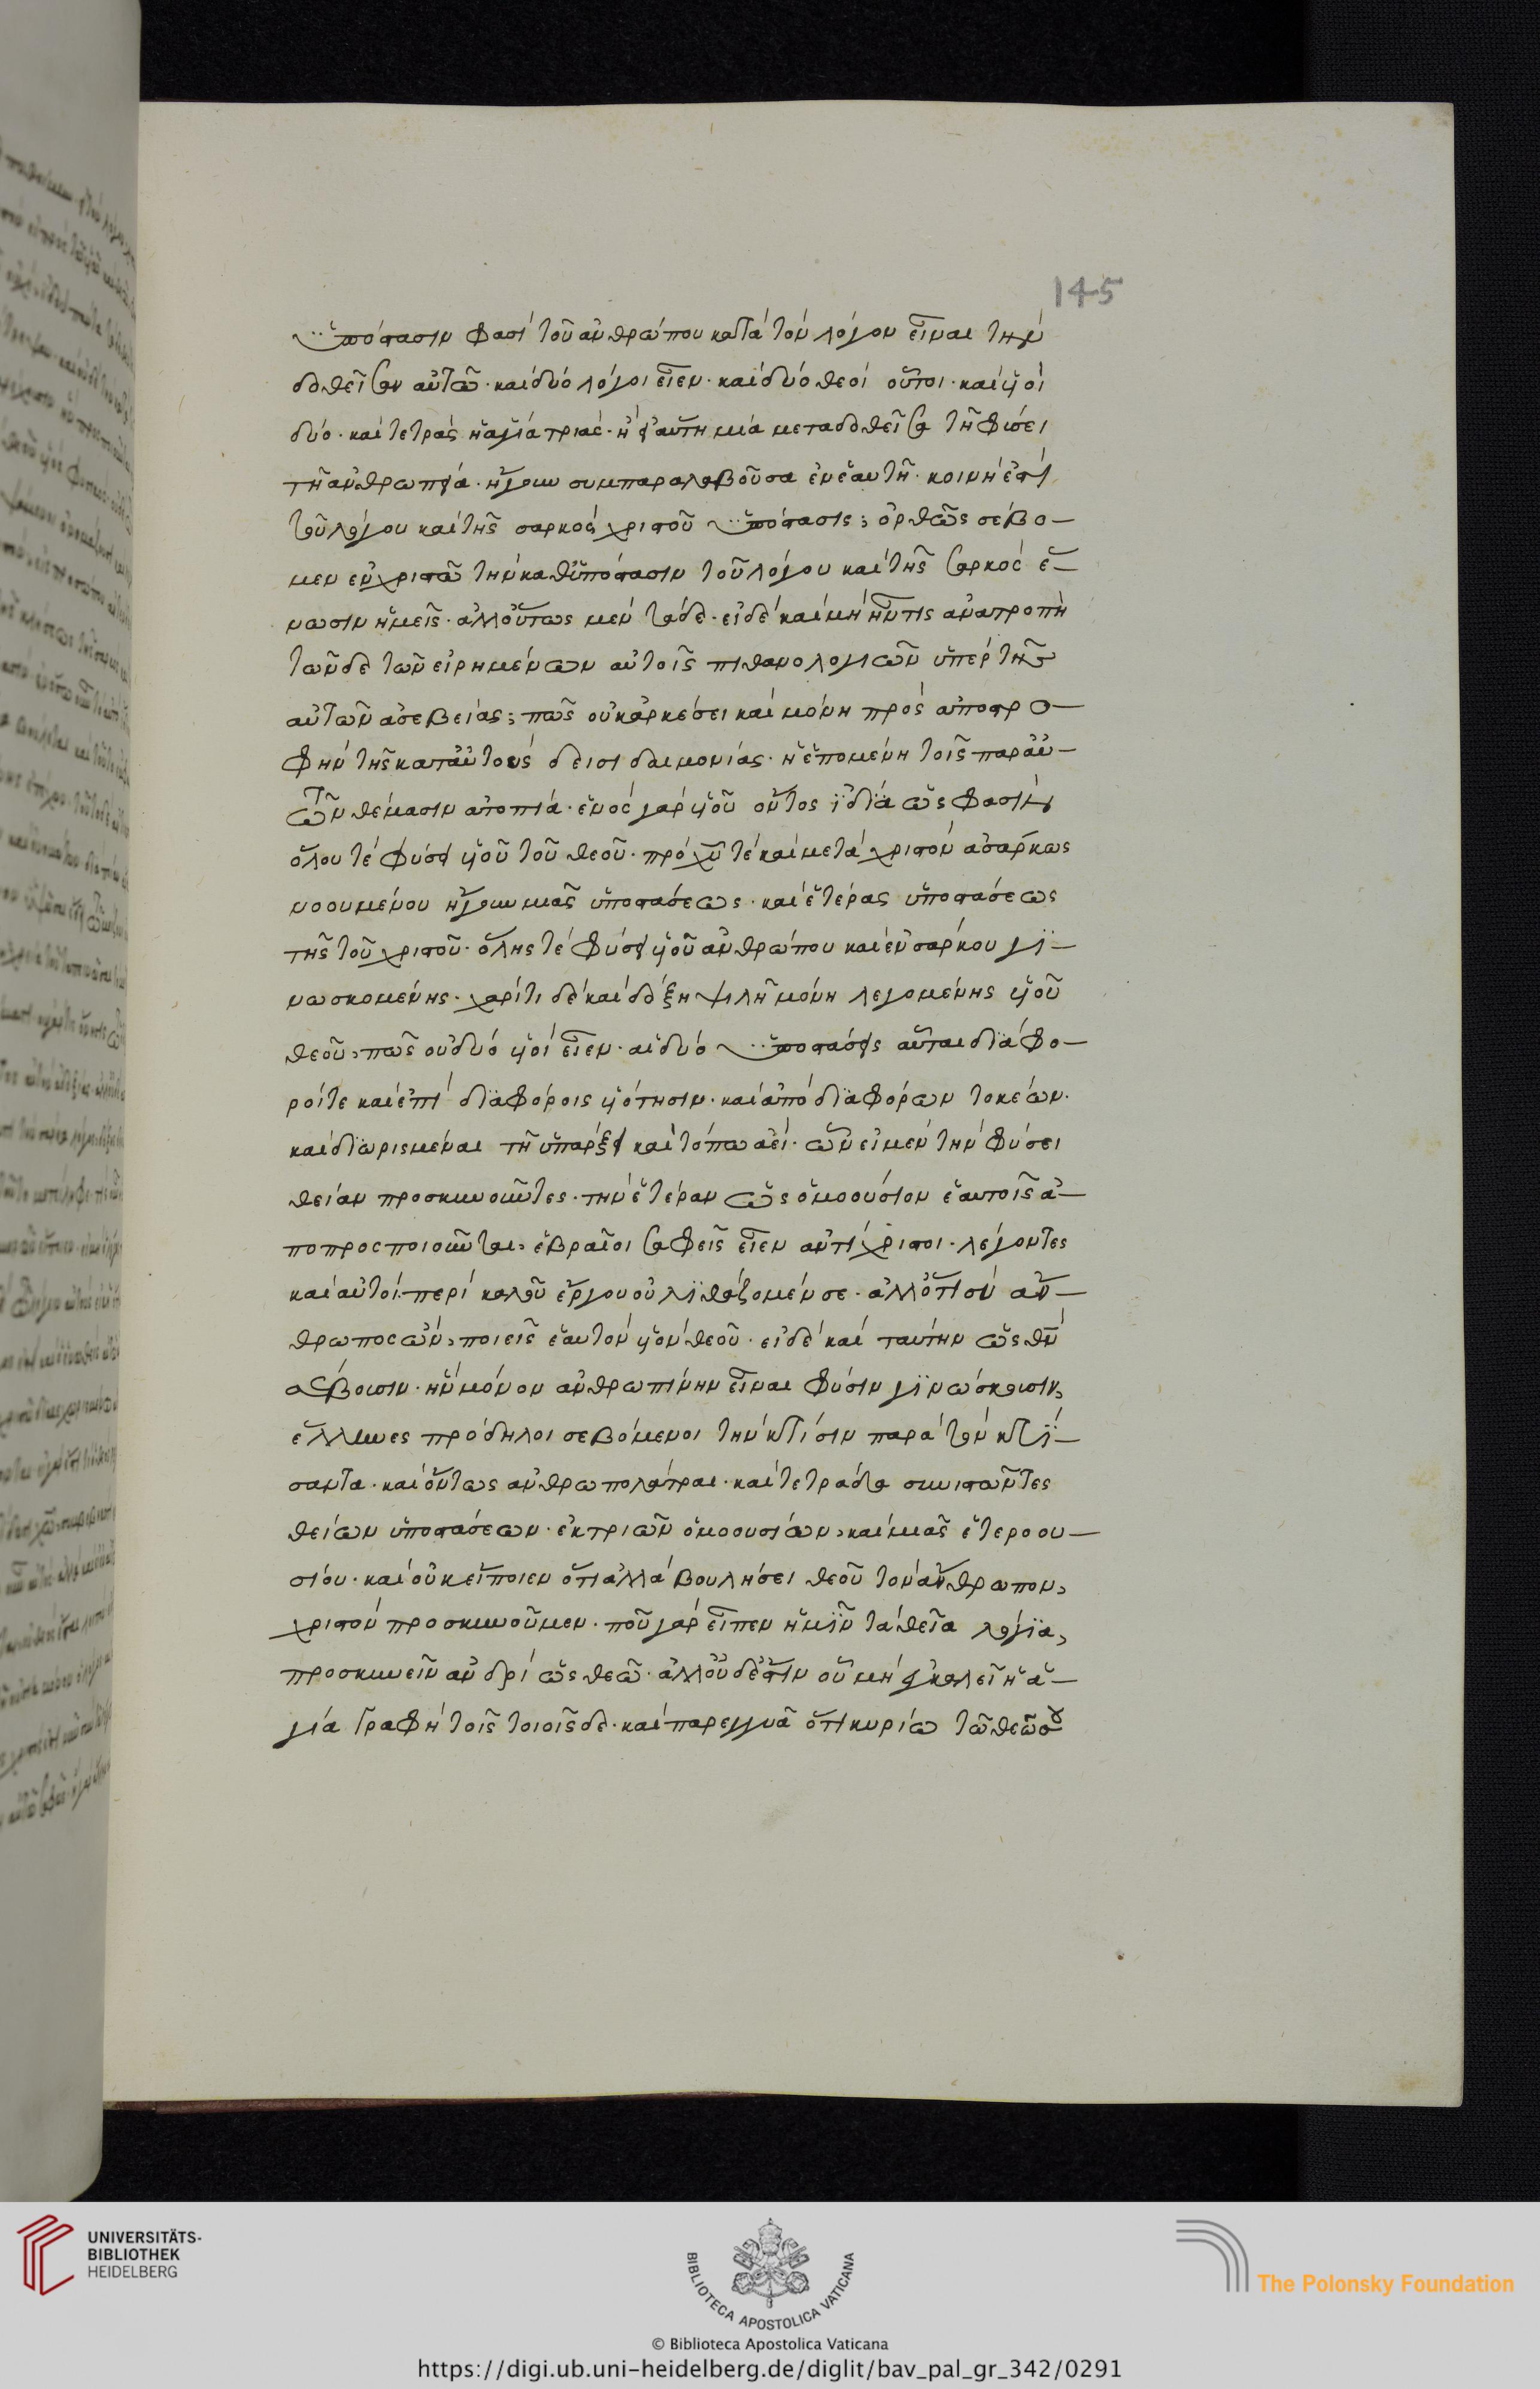 145
ὑπόστασιν φασὶ τοῦ ἀνθρώπου κατὰ τὸν λόγον εἶναι τὴν
δοθεῖσαν αὐτῶ· καὶ δύο λόγοι εἶεν· καὶ δύο θεοὶ οὗτοι· καὶ υἱοὶ
δύο· καὶ τετρὰς ἡ ἁγία τριάς· ἢ εἰ αὕτη μία μεταδοθεῖσα τῆ φύσει
τῆ ἀνθρωπεία· ἤγουν συμπαραλαβοῦσα ἐν ἑαυτῆ· κοινὴ ἐστὶ
τοῦ λόγου καὶ τῆς σαρκὸς χριστοῦ ὑπόστασις; ὀρθῶς σέβο-
μεν ἐν χριστῶ τὴν καθ' ὑπόστασιν τοῦ λόγου καὶ τῆς σαρκὸς ἕ-
νωσιν ἡμεῖς· ἀλλ' οὕτως μὲν τάδε· εἰ δὲ καὶ μὴ ἦν τις ἀνατροπὴ
τῶνδε τῶν εἰρημένων αὐτοῖς πιθανολογιῶν ὑπὲρ τῆς
αὐτῶν ἀσεβείας; πῶς οὐκ ἀρκέσει καὶ μόνη πρὸς ἀποστρο-
φὴν τῆς κατ' αὐτοὺς δεισιδαιμονίας· ἡ ἑπομένη τοῖς παρ' αὐ-
τῶν θέμασιν ἀτοπία· ἑνὸς γὰρ υἱοῦ ὄντος ἰδία ὥς φασιν
ὅλου τὲ φύσει υἱοῦ τοῦ θεοῦ· πρὸ χυ τὲ καὶ μετὰ χριστὸν ἀσάρκως
νοουμένου ἤγουν μιᾶς ὑποστάσεως· καὶ ἑτέρας ὑποστάσεως
τῆς τοῦ χριστοῦ· ὅλης τὲ φύσει υἱοῦ ἀνθρώπου καὶ ἐνσάρκου γι-
νωσκομένης· χάριτι δὲ καὶ δόξη ψιλῆ μόνη λεγομένης υἱοῦ
θεοῦ, πῶς οὐ δύο υἱοὶ εἶεν· αἱ δύο ὑποστάσεις αὗται διάφο-
ροί τε καὶ ἐπὶ διαφόροις υἱότησιν· καὶ ἀπὸ διαφόρων τοκέων·
καὶ διωρισμέναι τῆ ὑπάρξει καὶ τόπω ἀεί· ὧν εἰ μὲν τὴν φύσει
θείαν προσκυνοῦντες· τὴν ἑτέραν ὡς ὁμοούσιον ἑαυτοῖς ἀ-
ποπροσποιοῦνται, ἑβραῖοι σαφεῖς εἶεν ἀντίχριστοι· λέγοντες
καὶ αὐτοί· περὶ καλοῦ ἔργου οὐ λιθάζομέν σε· ἀλλ' ὅτι σὺ ἄν-
θρωπος ὤν, ποιεῖς ἑαυτὸν υἱὸν θεοῦ· εἰ δὲ καὶ ταύτην ὡς θν
σέβουσιν· ἣν μόνον ἀνθρωπίνην εἶναι φύσιν γινώσκουσιν,
ἕλληνες πρόδηλοι σεβόμενοι τὴν κτίσιν παρὰ τὸν κτί-
σαντα· καὶ ὄντως ἀνθρωπολάτραι· καὶ τετράδα συνιστῶντες
θείων ὑποστάσεων· ἐκ τριῶν ὁμοουσίων, καὶ μιᾶς ἑτεροου-
σίου· καὶ οὐκ εἴποιεν ὅτι ἀλλὰ βουλήσει θεοῦ τὸν ἄνθρωπον,
χριστὸν προσκυνοῦμεν· ποῦ γὰρ εἶπεν ἡμῖν τὰ θεῖα λόγια,
προσκυνεῖν ἀνδρὶ ὡς θεῶ· ἀλλ' οὐδέστιν οὗ μὴ ἐγκαλεῖ ἡ ἁ-
γία γραφὴ τοῖς τοιοῖσδε· καὶ παρεγγυᾶ ὅτι κυρίω τῶ θεῶ σου
UNIVERSITÄTS-
BIBLIOTHEK
HEIDELBERG
BIBLIOTECA APOSTOLICA VATICANA
The Polonsky Foundation
© Biblioteca Apostolica Vaticana
https://digi.ub.uni-heidelberg.de/diglit/bav_pal_gr_342/0291